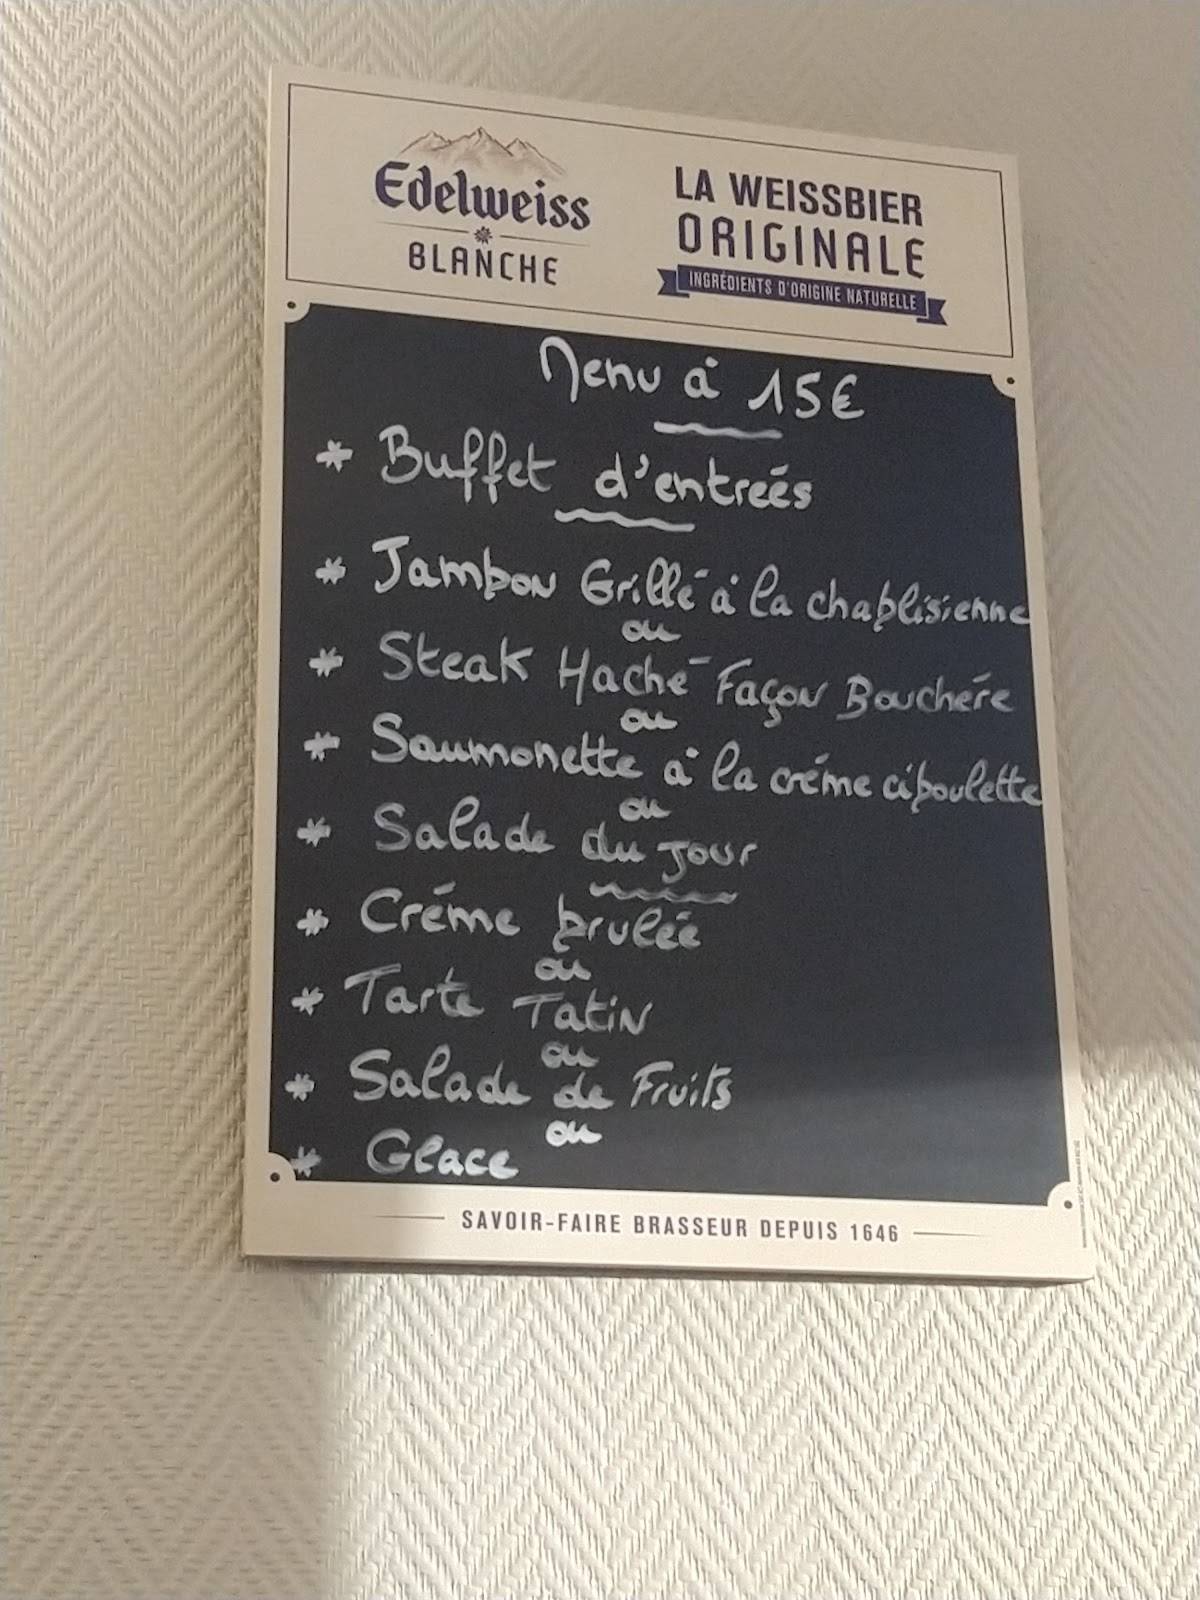 Edelweiss
BLANCHE
LA WEISSBIER
ORIGINALE
INGRÉDIENTS D'ORIGINE NATURELLE
Menu à 15€
* Buffet d'entreés
* Jambon Grillé à la chablisienne
ou
* Steak Haché Façon Bouchére
ou
* Saumonette à la créme ciboulette
ou
* Salade du jour
* Créme brulée
ou
* Tarte Tatin
ou
* Salade de Fruits
ou
* Glace
SAVOIR-FAIRE BRASSEUR DEPUIS 1646